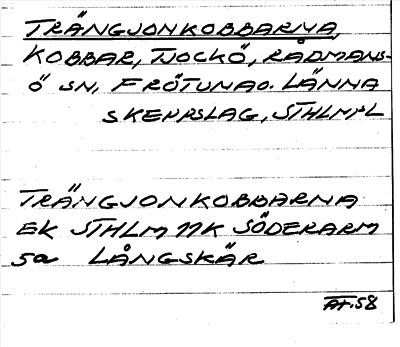 TRÄNGJONKOBBARNA,
KOBBAR, TJOCKÖ, RÅDMANS-
Ö SN, FRÖTUNA O. LÄNNA
SKEPPSLAG, STHLM L
TRÄNGJONKOBBARNA
EK STHLM NK SÖDERARM
5a LÅNGSKÄR
AF.58